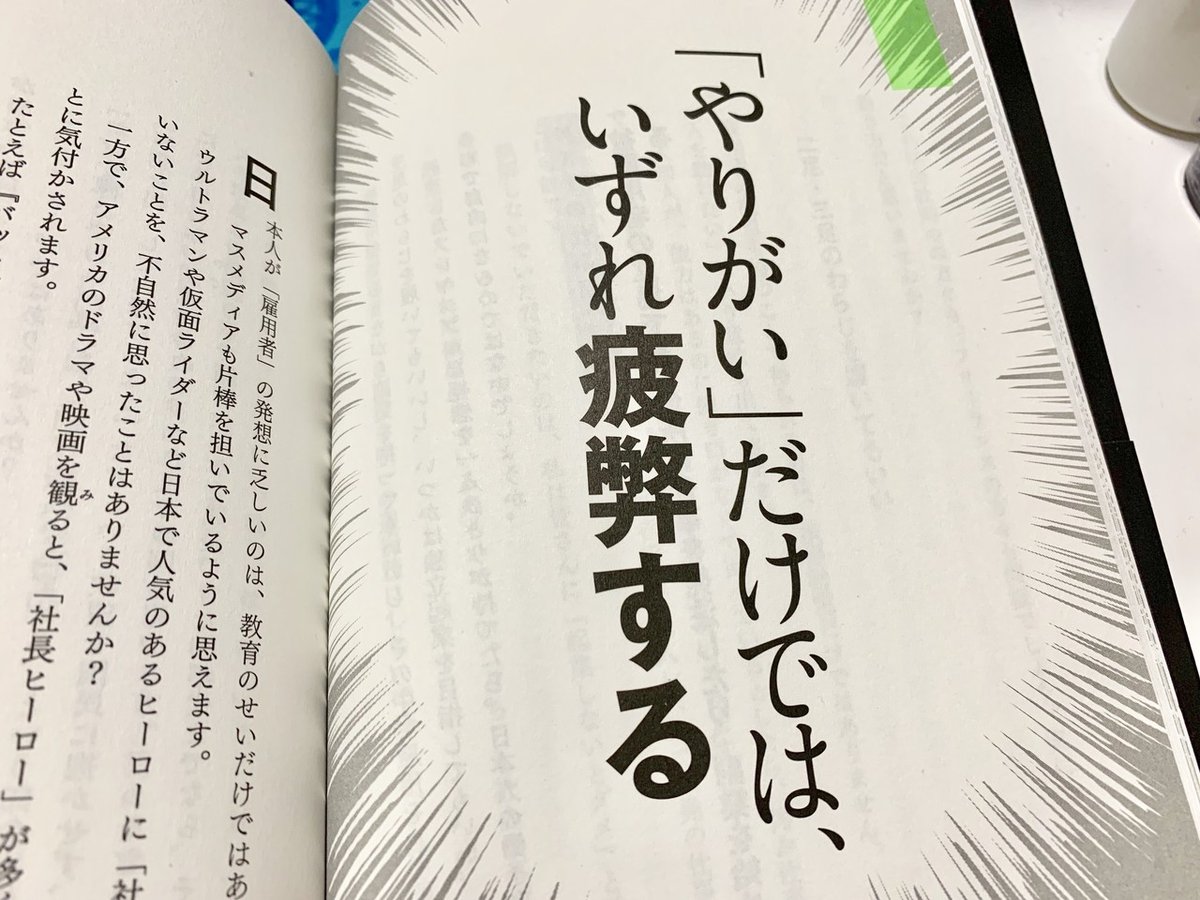 「やりがい」だけでは、
いずれ疲弊する
日本人が「雇用者」の発想に乏しいのは、教育のせいだけではあ
マスメディアも片棒を担いでいるように思えます。
ウルトラマンや仮面ライダーなど日本で人気のあるヒーローに「社
いないことを、不自然に思ったことはありませんか？
一方で、アメリカのドラマや映画を観み ると、「社長ヒーロー」が多
とに気付かされます。
たとえば『バッ